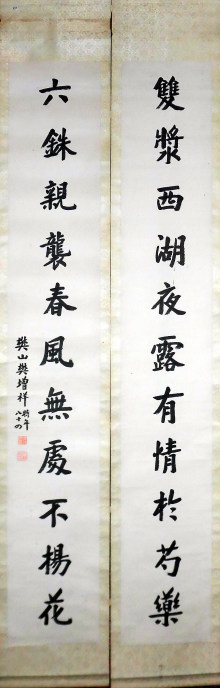 雙槳西湖夜露有情於芍藥
六銖親襲春風無處不楊花
樊山樊增祥時年
八十四